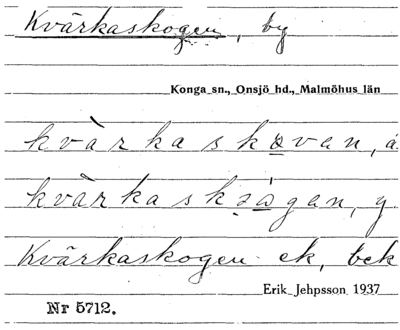 Kvärkaskogen, by
Konga sn., Onsjö hd., Malmöhus län
kvàrkaskovan, á
kvàrkaskågan, y
Kvärkaskogen ek, bek
Erik Jehpsson 1937
Nr 5712.